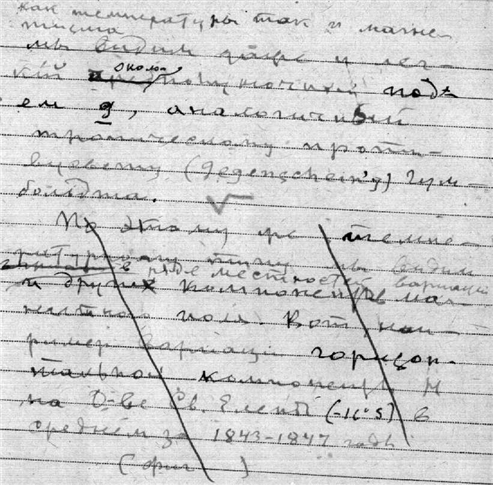 как температуры так и магне-
тизма
мы видим даже и лег-
кий около полуночный подъ-
ем g, аналогичный
тропическому проти-
восвету (gegenschein'у) Гум-
больдта.
По этому же темпе-
ратурному типу мы видим
в ряде местностей вариации
и других компонентов маг-
нитного поля. Вот нап-
ример вариации горизон-
тальной компоненты H
на О-ве Св. Елены (-16°S) в
среднем за 1843-1847 годы
(фиг )